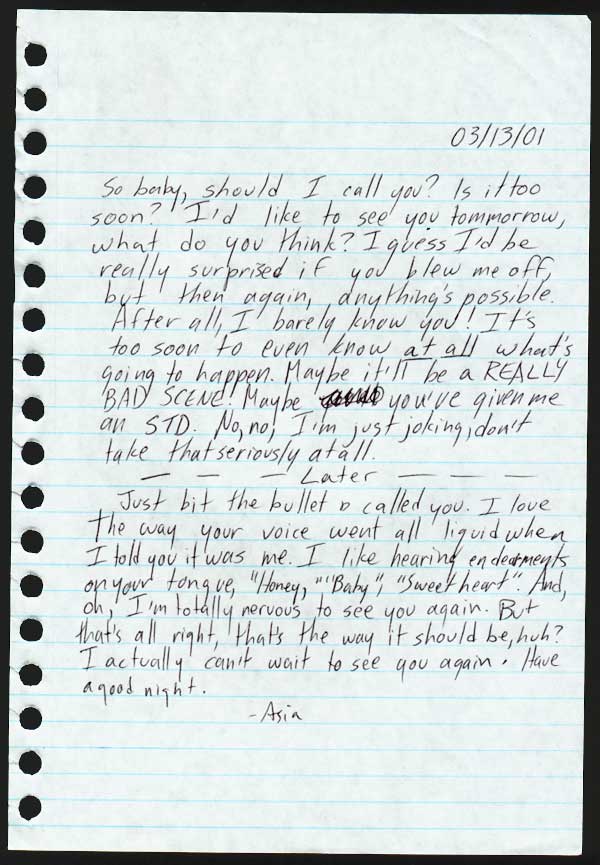 03/13/01
So baby, should I call you? Is it too
soon? I'd like to see you tommorrow,
what do you think? I guess I'd be
really surprised if you blew me off,
but then again, anything's possible.
After all, I barely know you! It's
too soon to even know at all what's
going to happen. Maybe it'll be a REALLY
BAD SCENE! Maybe you've given me
an STD. No, no, I'm just joking, don't
take that seriously at all.
— — — Later — — —
Just bit the bullet & called you. I love
the way your voice went all liquid when
I told you it was me. I like hearing endearments
on your tongue, "Honey," "Baby", "Sweetheart". And,
oh, I'm totally nervous to see you again. But
that's all right, that's the way it should be, huh?
I actually can't wait to see you again. Have
a good night.
-Asia